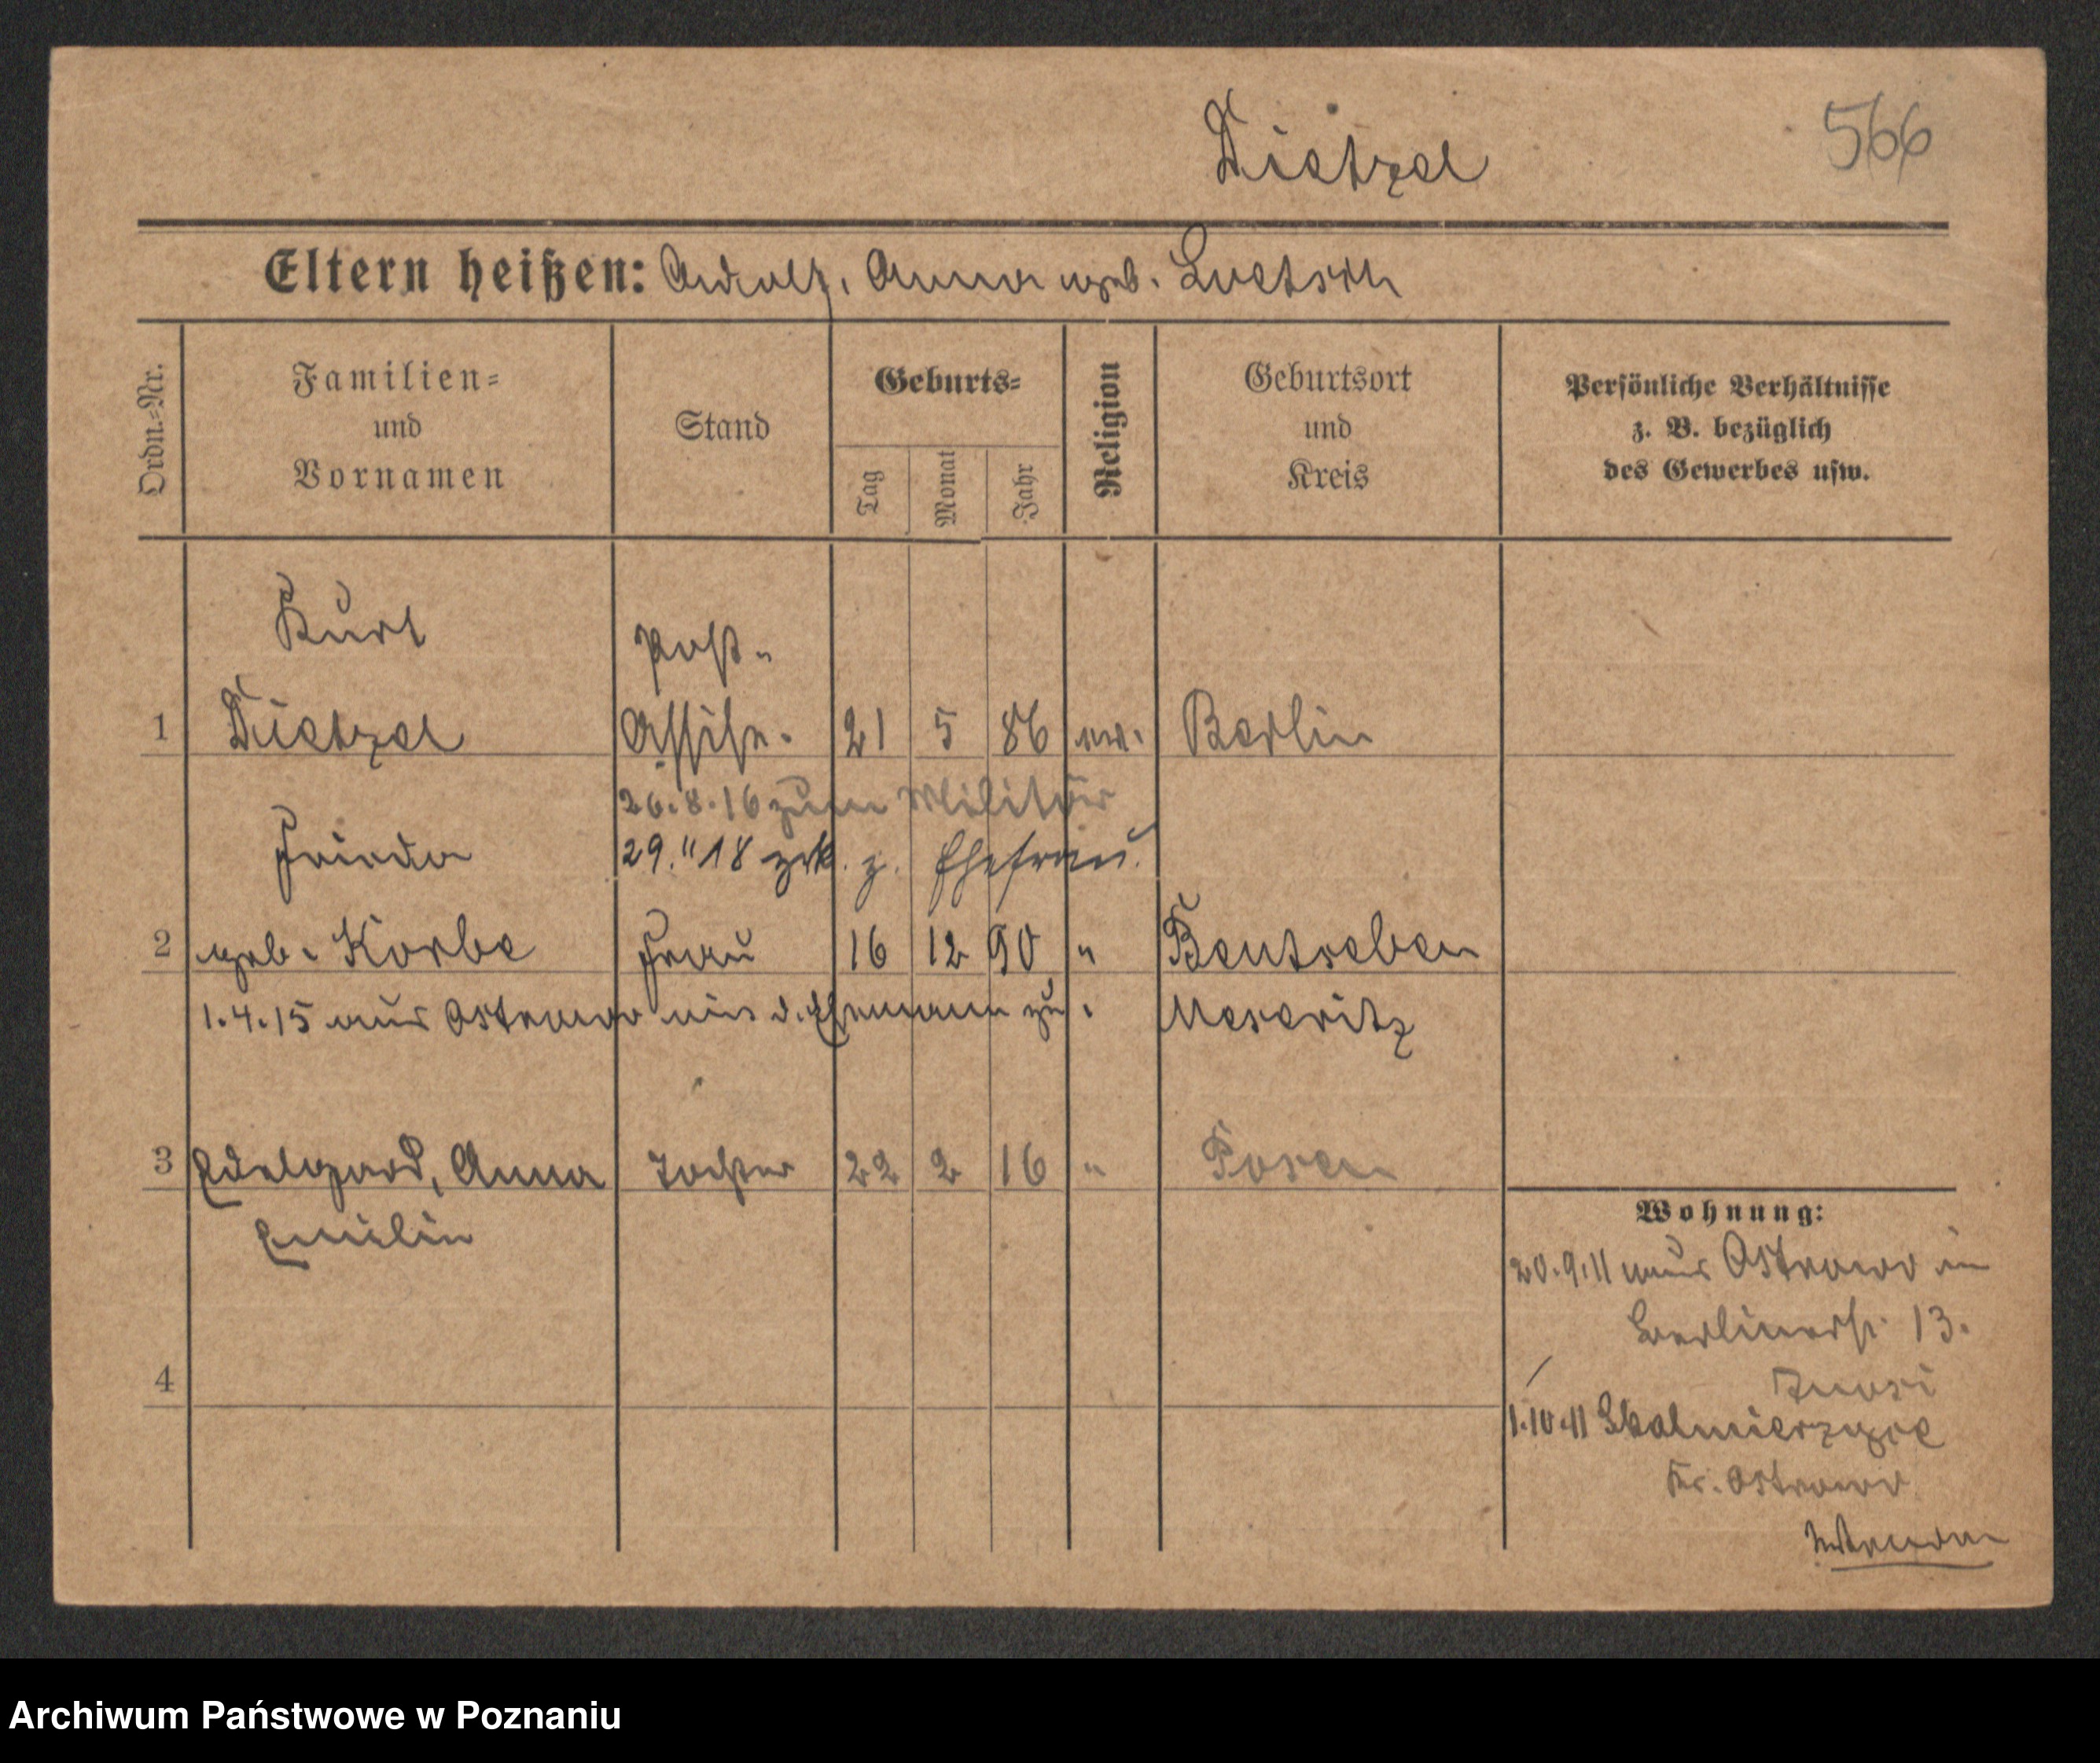 566
Dietzel
Eltern heißen: Rudolf, Anna geb. Loetsch
Ordn.=Nr.
Familien=
und
Vornamen
Stand
Geburts=
Tag
Monat
Jahr
Religion
Geburtsort
und
Kreis
Persönliche Verhältnisse
z. B. bezüglich
des Gewerbes usw.
Kurt
Post-
1 Dietzel Assist. 21 5 86 ev. Berlin
26.8.16 zum Militär
Frieda 29." 18 zrk. z. Ehefrau.
2 geb. Korbe Frau 16 12 90 " Bentschen
1.4.15 aus Ostrowo mit d. Ehemann zu. Meseritz
3 Edelgard, Anna Tochter 22 2 16 " Posen
Emilie
Wohnung:
20.9.11 aus Ostrowo in
Berlinerstr. 13.
1.10.11 Skalmierzyce
4
Kr. Ostrowo
Archiwum Państwowe w Poznaniu